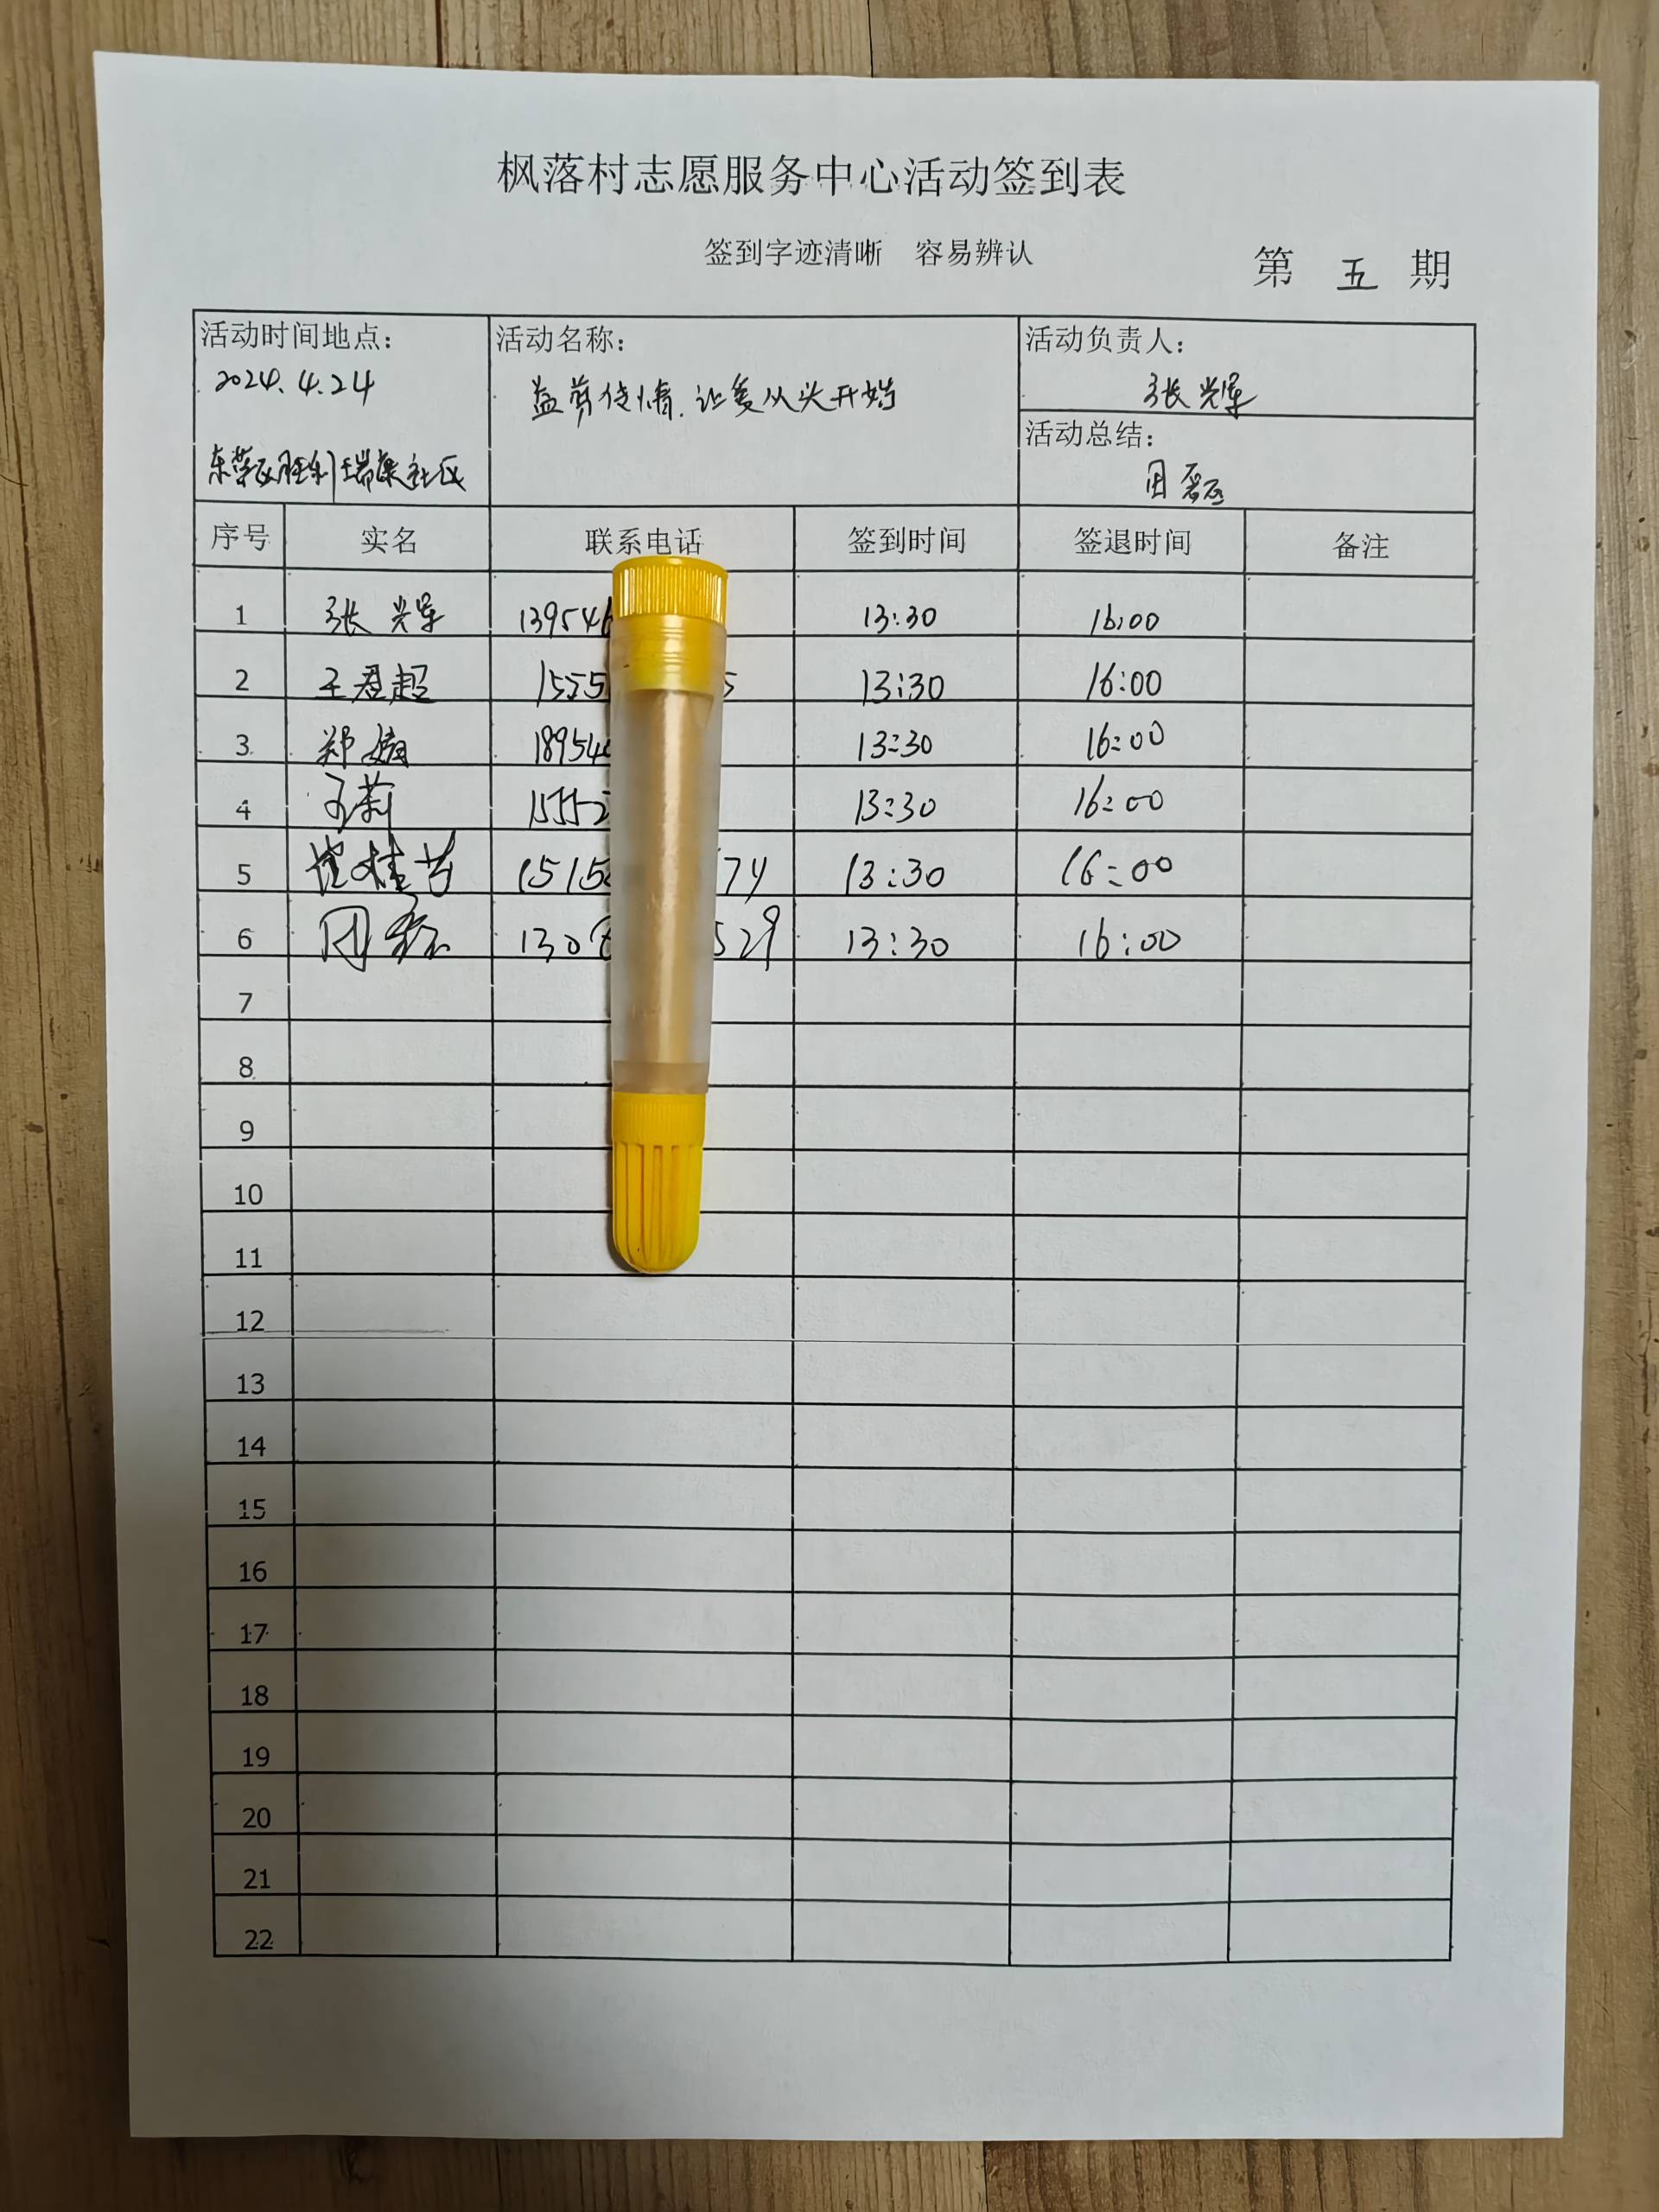 枫落村志愿服务中心活动签到表
签到字迹清晰 容易辨认
第 五 期
活动时间地点：
2024.4.24
东营区胜利瑞康社区
活动名称：
益剪传情.让爱从头开始
活动负责人：
张光军
活动总结：
周磊
序号 实名 联系电话 签到时间 签退时间 备注
1 张光军 139546 13:30 16:00
2 王君超 1555 5 13:30 16:00
3 郑娟 18954 13:30 16:00
4 王莉 15552 13:30 16:00
5 桂芳 1515 74 13:30 16:00
6 周磊 130 529 13:30 16:00
7
8
9
10
11
12
13
14
15
16
17
18
19
20
21
22